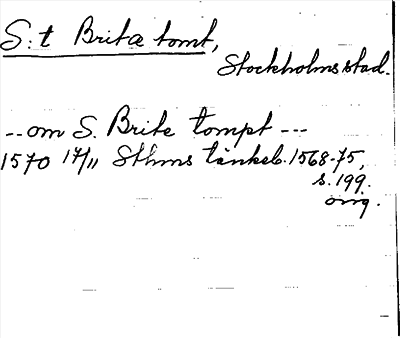 S:t Britæ tomt,
Stockholms stad.
--om S. Brite tompt ---
1570 17/11 Sthms tänkeb. 1568-75,
s. 199.
orig.